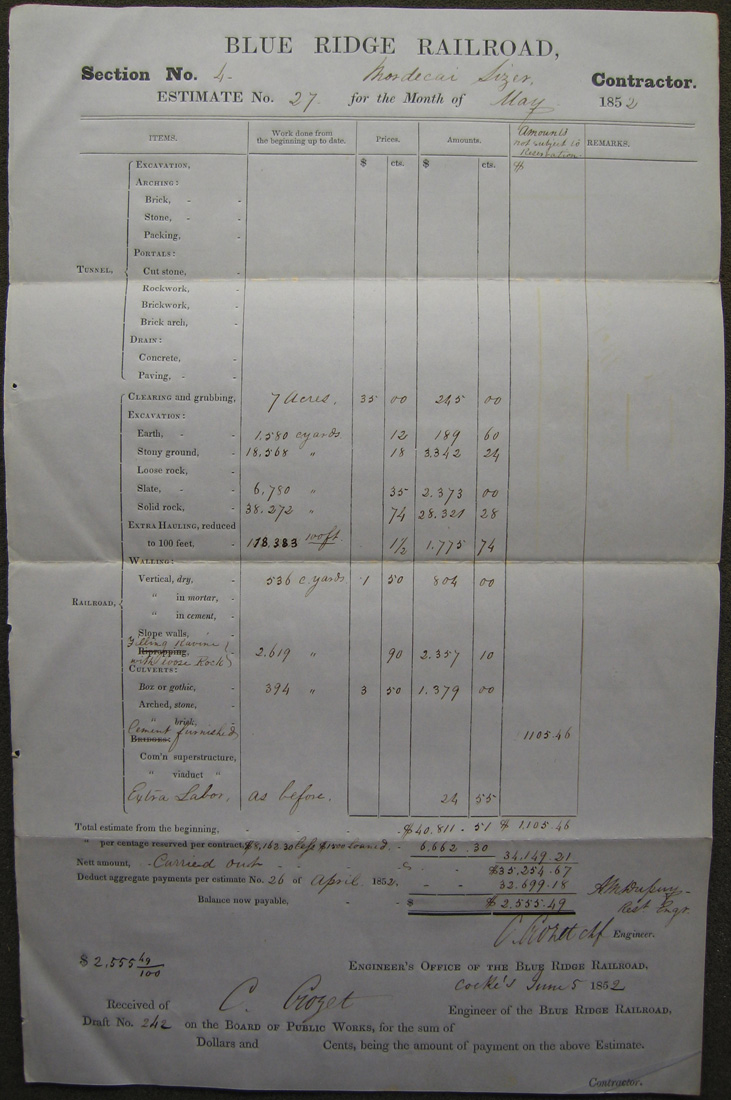 BLUE RIDGE RAILROAD,
Section No. 4. Mordecai Sizer, Contractor.
ESTIMATE No. 27. for the Month of May 1852
ITEMS. Work done from the beginning up to date. Prices. Amounts. Amounts not subject to Reservation. REMARKS.
$ cts. $ cts. $
TUNNEL,
EXCAVATION,
ARCHING:
Brick, - -
Stone, - -
Packing, -
PORTALS:
Cut stone, -
Rockwork, -
Brickwork, -
Brick arch, -
DRAIN:
Concrete, -
Paving, - -
RAILROAD,
CLEARING and grubbing, 7 Acres. 35 00 245 00
EXCAVATION:
Earth, - - 1.580 cyards 12 189 60
Stony ground, - 18,568 " 18 3.342 24
Loose rock, -
Slate, - - 6,780 " 35 2.373 00
Solid rock, - 38.272 " 74 28.321 28
EXTRA HAULING, reduced
to 100 feet, - 118,383 100ft. 1½ 1.775 74
WALLING:
Vertical, dry, - 536 c. yards 1 50 804 00
" in mortar, -
" in cement, -
Slope walls, -
Filling Ravine
Riprapping, - 2.619 " 90 2.357 10
with loose Rock
CULVERTS:
Box or gothic, - 394 " 3 50 1.379 00
Arched, stone, -
" brick, -
Cement furnished 1105.46
BRIDGES:
Com'n superstructure,
" viaduct "
Extra Labor, as before. 24 55
Total estimate from the beginning, - - - - $40.811 - 51 $ 1.105.46
" per centage reserved per contract, $8,162.30 less $1500 loaned - 6.662 . 30
34,149.21
Nett amount, Carried out - - - - $35.254.67
Deduct aggregate payments per estimate No. 26 of April, 1852, - - 32.699.18
Balance now payable, - - $ $2.555.49
A M Dupuy
Rest Engr.
C. Crozet chf Engineer.
$2,555 49/100
ENGINEER'S OFFICE OF THE BLUE RIDGE RAILROAD,
Cocke's June 5 1852
Received of C. Crozet Engineer of the BLUE RIDGE RAILROAD,
Draft No. 242 on the BOARD OF PUBLIC WORKS, for the sum of
Dollars and Cents, being the amount of payment on the above Estimate.
Contractor.